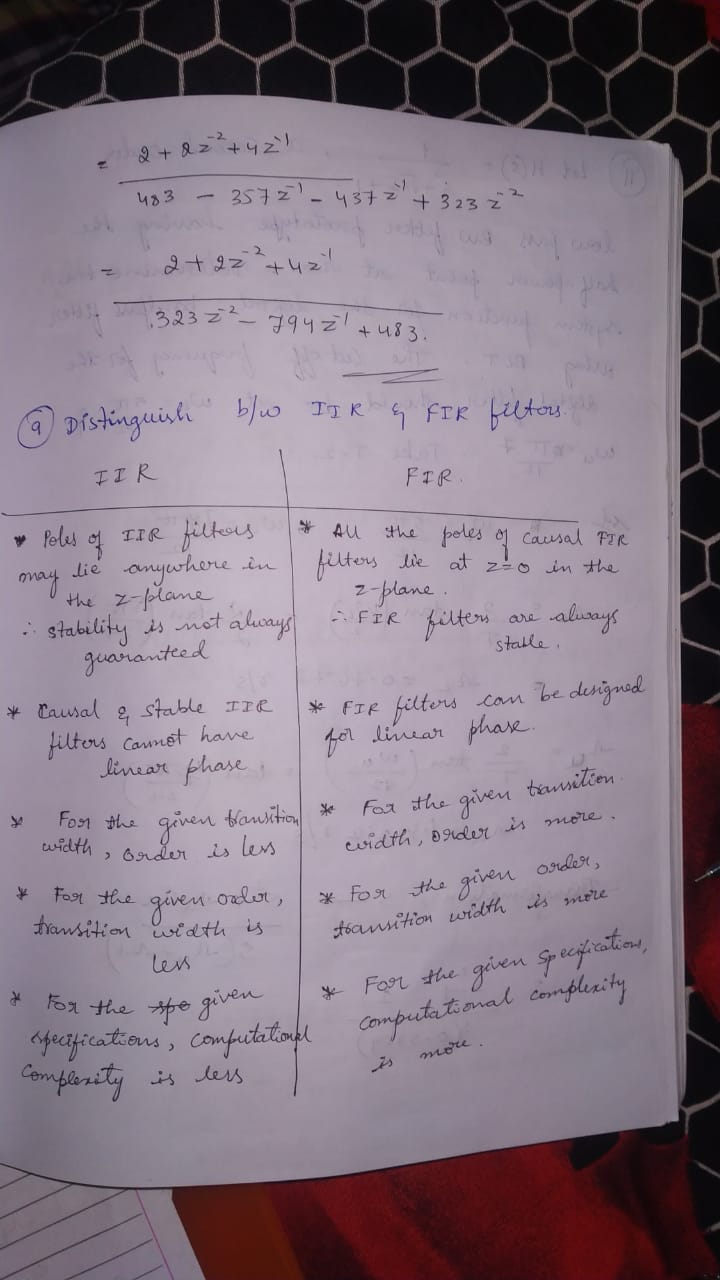 = 2 + 2z⁻² + 4z⁻¹
483 - 357z⁻¹ - 437z⁻¹ + 323z⁻²
= 2 + 2z⁻² + 4z⁻¹
323z⁻² - 794z⁻¹ + 483.
9 Distinguish b/w IIR & FIR filters.
IIR
FIR.
* Poles of IIR filters
may lie anywhere in
the z-plane
∴ stability is not always
guaranteed
* All the poles of causal FIR
filters lie at z=0 in the
z-plane.
∴ FIR filters are always
stable.
* Causal & stable IIR
filters cannot have
linear phase
* FIR filters can be designed
for linear phase.
* For the given transition
width, order is less
* For the given transition
width, order is more.
* For the given order,
transition width is
less
* For the given order,
transition width is more
* For the spe given
specifications, computational
complexity is less
* For the given specifications,
computational complexity
is more.